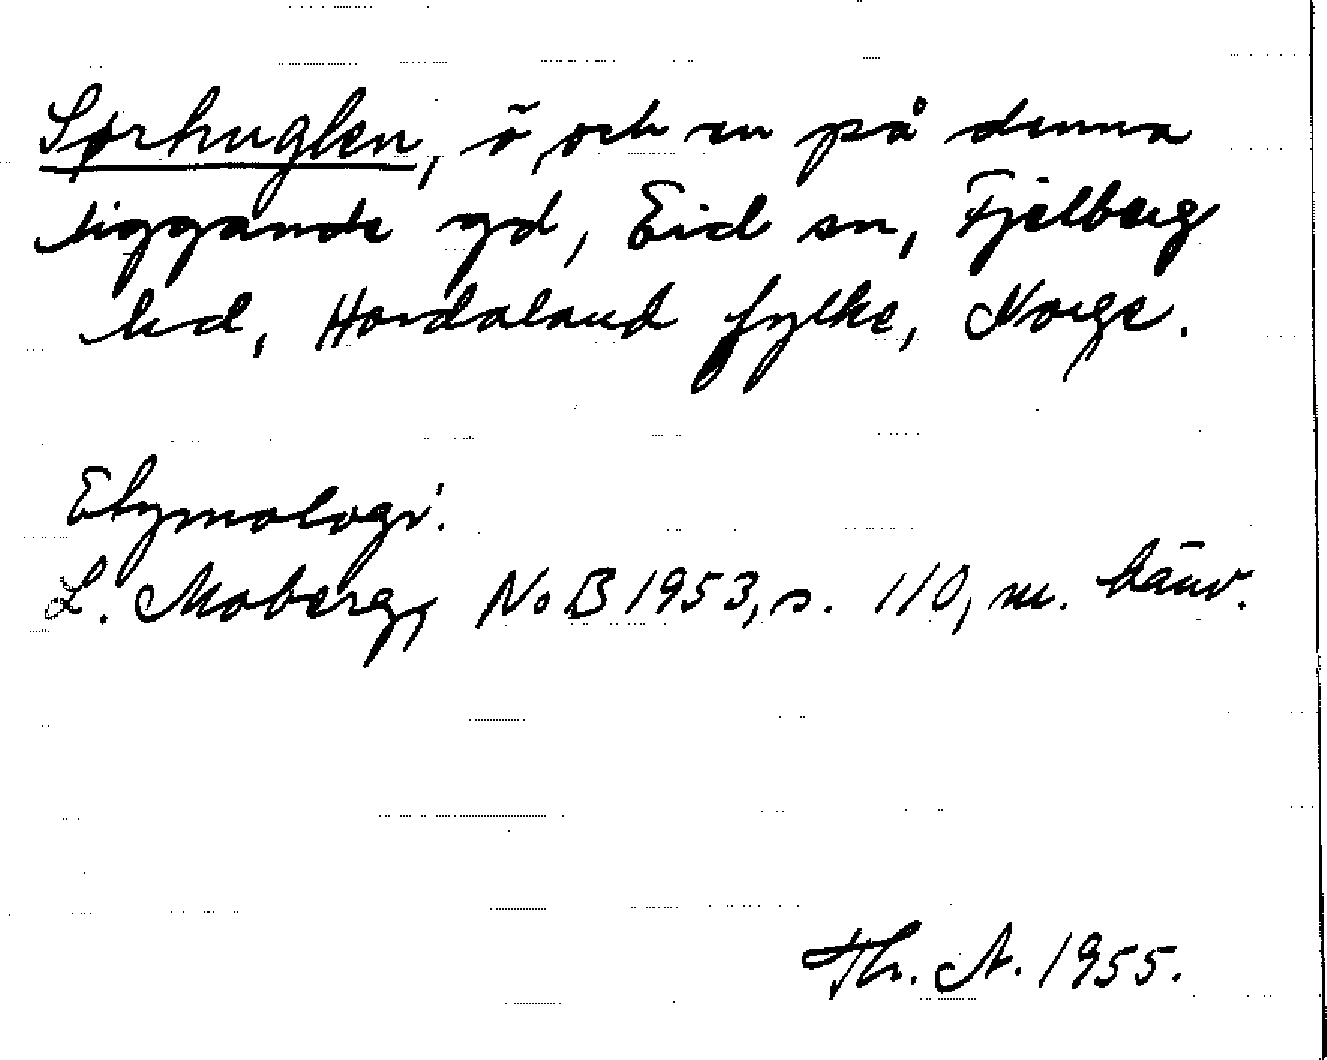 Sørhuglen, ö, och en på denna
liggande gd, Eid sn, Fjelberg
hd, Hordaland fylke, Norge.
Etymologi:
L. Moberg, NoB 1953, s. 110, m. hänv.
Th. A. 1955.